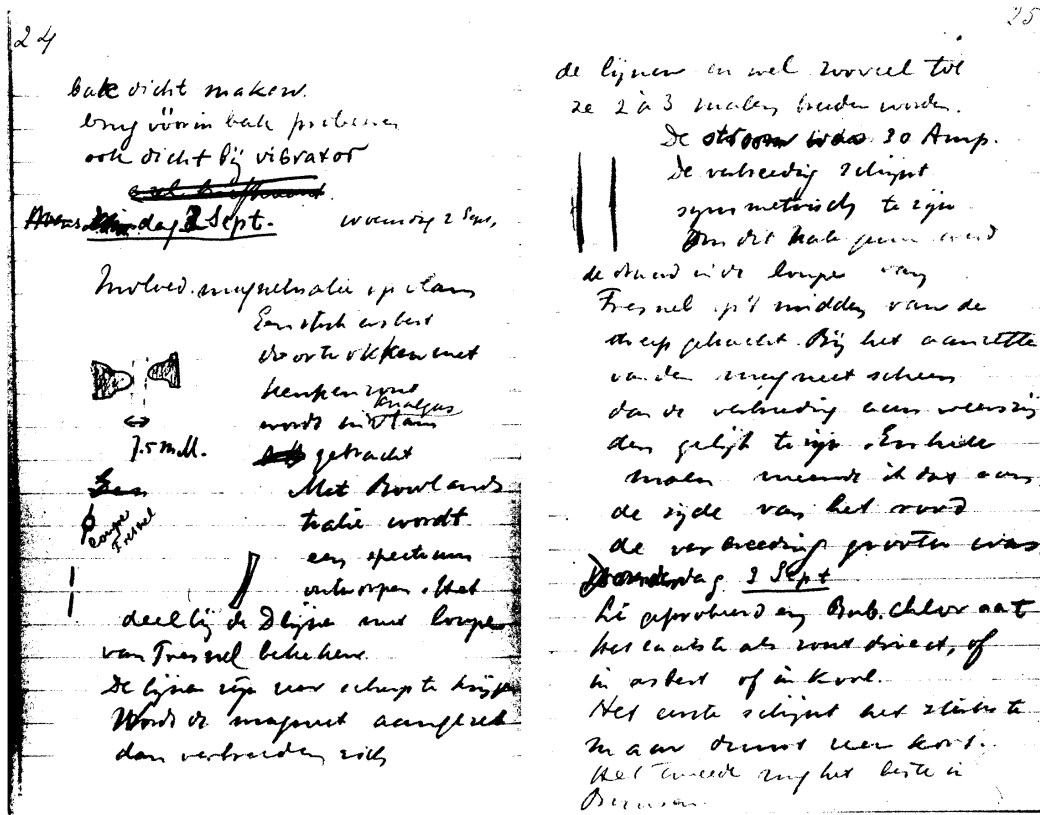 24
bak dicht maken.
brug vóór in bak proberen
ook dicht bij vibrator
dag 2 Sept. woensdag 2 Sept.
Invloed magnetisatie op vlam
Een stuk asbest
doortrokken met
keukenzout
analyse
wordt in vlam
gebracht
7.5 m.M.
Met Rowlands
loupe
Fresnel
tralie wordt
een spectrum
ontworpen. Het
deel bij de D lijn met loupe
van Fresnel bekeken.
De lijnen zijn zeer scherp te krijgen
Wordt de magneet aangezet
dan verbreeden zich
25
de lijnen en wel zooveel tot
ze 2 à 3 malen breeder worden.
De stroom was 30 Amp.
De verbreeding schijnt
symmetrisch te zijn
Om dit
de draad in de loupe van
Fresnel op 't midden van de
streep gebracht. Bij het aanzetten
van den magneet scheen
dan de verbreeding aan weerszij
den gelijk te zijn. Enkele
malen meende ik dat aan
de zijde van het rood
de verbreeding grooter was
Donderdag 3 Sept
Li geprobeerd en Bub. chloraat
Het laatste als zout direct, of
in asbest of in kool.
Het eerste schijnt het sterkste
maar duurt zeer kort.
Het tweede nog het beste in
Bunsen.